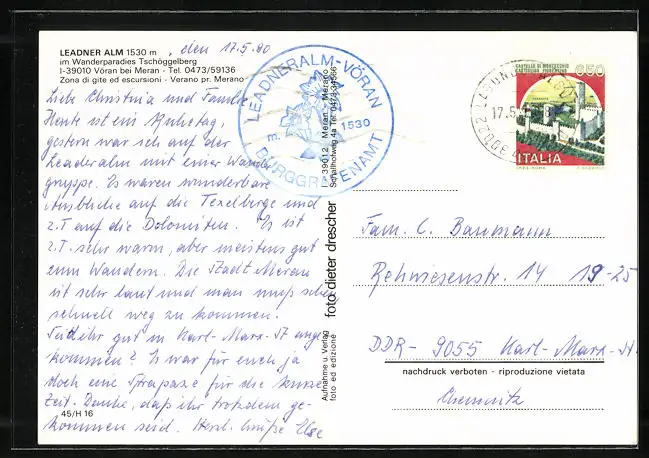 LEADNER ALM 1530 m
im Wanderparadies Tschöggelberg
I-39010 Vöran bei Meran - Tel. 0473/59136
Zona di gite ed escursioni - Verano pr. Merano
, den 17.5.90
Liebe Christina und Familie
Heute ist ein Ruhetag,
gestern war ich auf der
Leaderalm mit einer Wander
gruppe. Es waren wunderbare
Ausblicke auf die Texelberge und
z.T auf die Dolomiten. Es ist
z.T. sehr warm, aber meistens gut
zum Wandern. Die Stadt Meran
ist sehr laut und man muß sehen
schnell weg zu kommen.
Seid ihr gut in Karl-Marx-St ange
kommen? Es war für euch ja
doch eine Strapaze für die kurze
Zeit. Danke, daß ihr trotzdem ge-
kommen seid. Herzl. Grüße Ilse
45/H 16
LEADNERALM-VÖRAN
m. 1530
BURGGRAFENAMT
I - 39012 Meran - Merano
Schallhofweg 4a Tel. 0473-34566
foto dieter drescher
Aufnahme u. Verlag
foto ed edizione
17.5.
39022
CASTELLO DI MONTECCHIO
CASTIGLION FIORENTINO
650
ITALIA
Fam. C. Baumann
Rehwiesenstr. 14 19-25
DDR- 9055 Karl-Marx-St.
nachdruck verboten - riproduzione vietata
Chemnitz